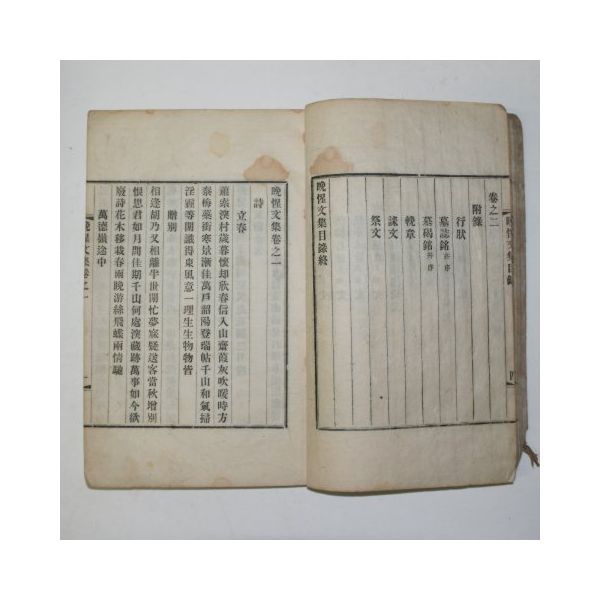 卷之二
附錄
行狀
墓誌銘 幷序
墓碣銘 幷序
輓章
誄文
祭文
晩惺文集目錄終
晩惺文集目錄
晩惺文集卷之一
詩
立春
蕭索溪村歲暮懷却欣春信入山齋葭灰吹暖時方
泰梅藥衝寒景漸佳萬戶韶陽登瑞帖千山和氣掃
淫霾等閒識得東風意一理生生物物皆
贈別
相逢胡乃又相離半世閒忙夢寐疑送客當秋增別
恨思君如月問佳期千山何處深藏跡萬事如今欲
廢詩花木移栽春雨晩游絲飛蝶兩情驗
萬德嶺途中
晩惺文集卷之一
一